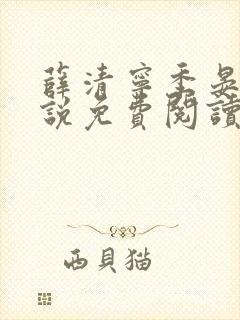 薛清寧季晏
說免費閱讀
西貝猫